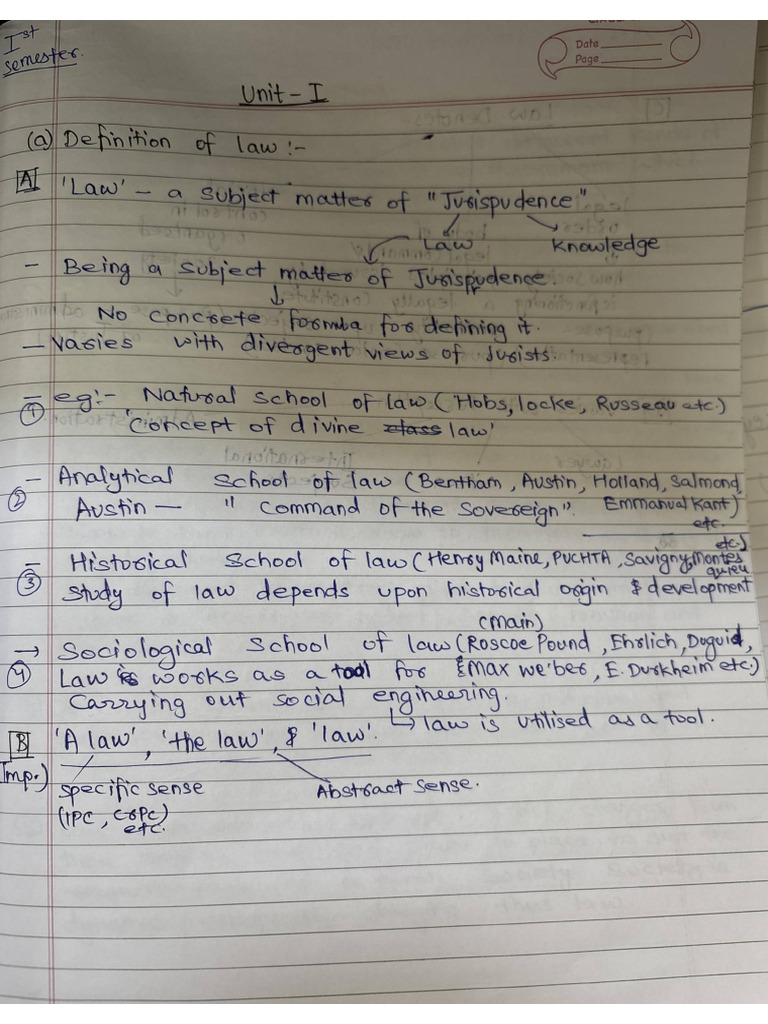 Ist
semester.
Date
Page
Unit - I
(a) Definition of law :-
A 'Law' - a subject matter of "Jurispudence"
Law Knowledge
- Being a subject matter of Jurispudence.
No concrete formula for defining it.
- Varies with divergent views of Jurists.
① - eg:- Natural School of law (Hobs, locke, Russeau etc.)
'Concept of divine class law'
② - Analytical School of law (Bentham, Austin, Holland, Salmond,
Austin — "Command of the Sovereign". Emmanual Kant)
etc.
etc.)
③ - Historical School of law (Henry Maine, PUCHTA, Savigny, Montes
quieu
study of law depends upon historical origin & development
(main)
④ → Sociological School of law (Roscoe Pound, Ehrlich, Doguid,
Law is works as a tool for & Max we'ber, E. Durkheim etc.)
carrying out social engineering.
↳ law is utilised as a tool.
B 'A law', 'the law', & 'law'.
Imp.) specific sense Abstract sense.
(IPC, CrPc)
etc.